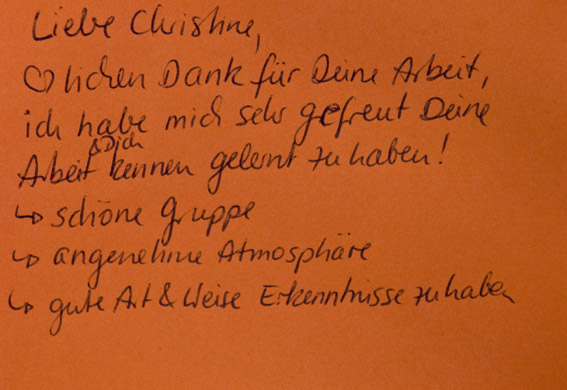 Liebe Christine,
♡lichen Dank für Deine Arbeit,
ich habe mich sehr gefreut Deine
Arbeit & Dich kennen gelernt zu haben!
↳ schöne Gruppe
↳ angenehme Atmosphäre
↳ gute Art & Weise Erkenntnisse zu haben